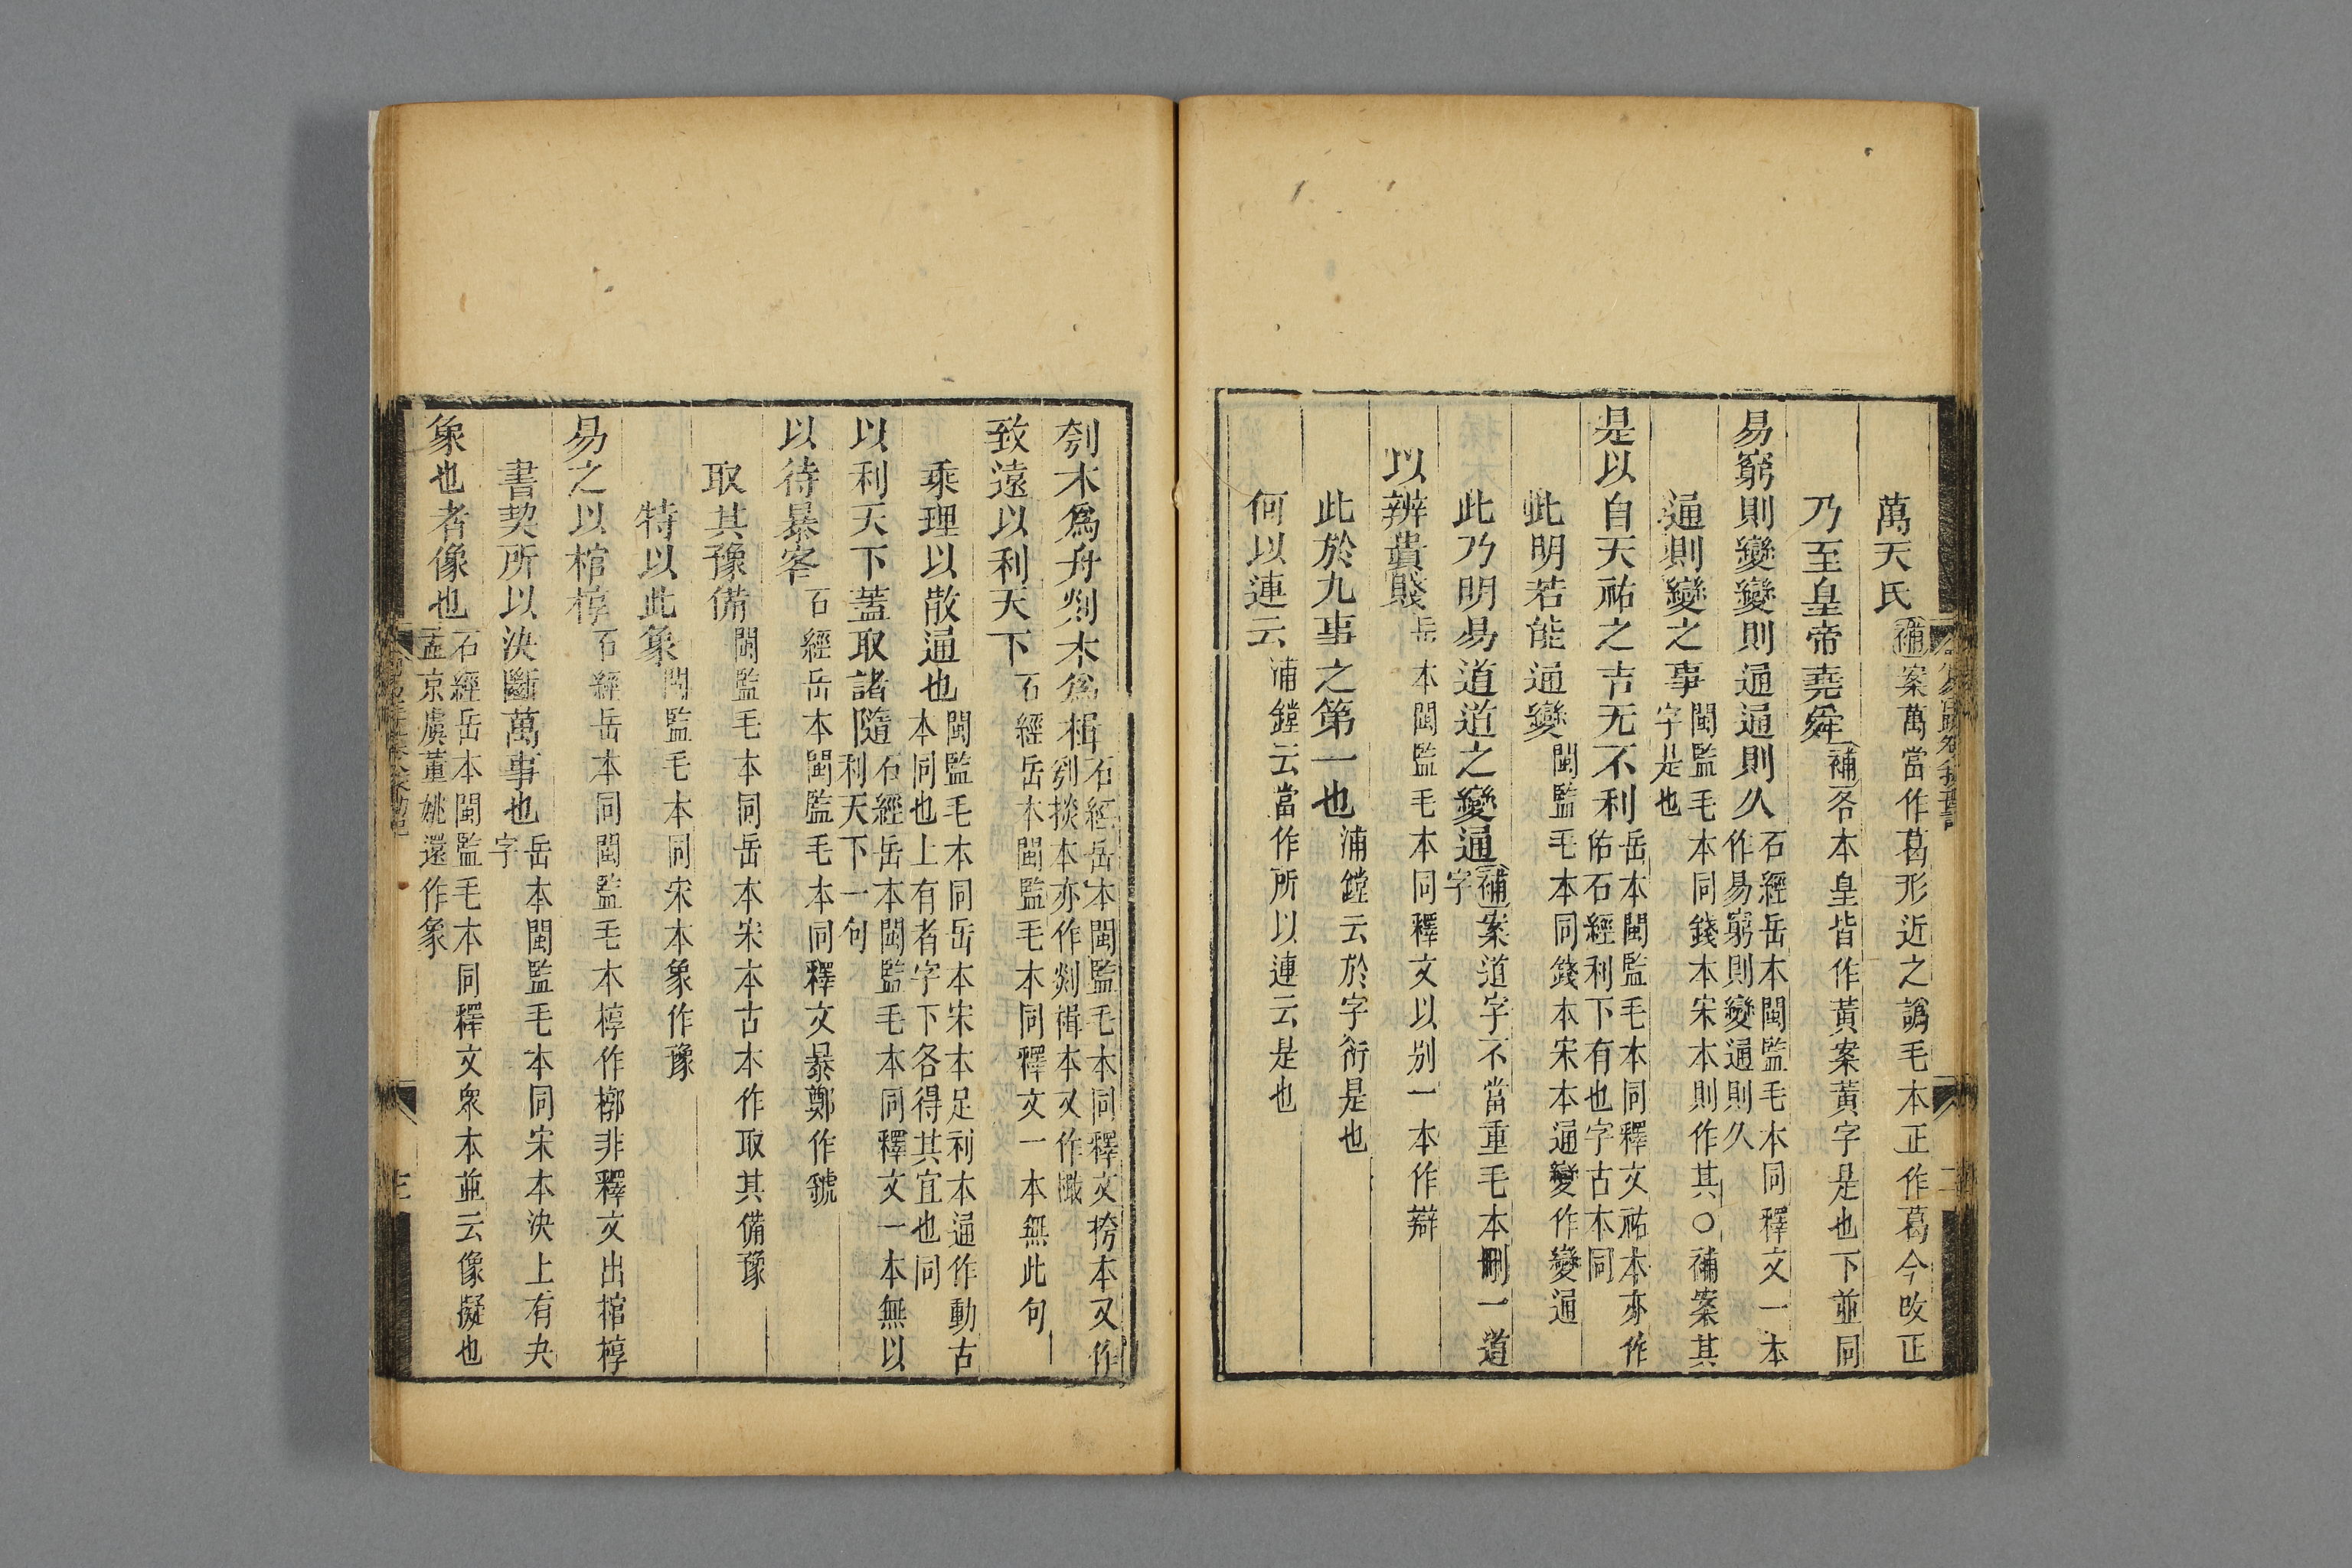 萬天氏補案萬當作葛形近之譌毛本正作葛今改正
乃至皇帝堯舜補各本皇皆作黃案黃字是也下並同
易窮則變變則通通則久石經岳本閩監毛本同釋文一本作易窮則變通則久
通則變之事閩監毛本同錢本宋本則作其○補案其字是也
是以自天祐之吉无不利岳本閩監毛本同釋文祐本亦作佑石經利下有也字古本同
此明若能通變閩監毛本同錢本宋本通變作變通
此乃明易道道之變通補案道字不當重毛本刪一道字
以辨貴賤岳本閩監毛本同釋文以别一本作辯
此於九事之第一也浦鏜云於字衍是也
何以連云浦鏜云當作所以連云是也
刳木爲舟剡木爲楫石經岳本閩監毛本同釋文挎本又作刳掞本亦作剡楫本又作檝
致遠以利天下石經岳本閩監毛本同釋文一本無此句
乘理以散通也閩監毛本同岳本宋本足利本通作動古本同也上有者字下各得其宜也同
以利天下蓋取諸隨石經岳本閩監毛本同釋文一本無以利天下一句
以待暴客石經岳本閩監毛本同釋文暴鄭作虣
取其豫備閩監毛本同岳本宋本古本作取其備豫
特以此象閩監毛本同宋本象作豫
易之以棺椁石經岳本同閩監毛本椁作槨非釋文出棺椁
書契所以決斷萬事也岳本閩監毛本同宋本決上有夬字
象也者像也石經岳本閩監毛本同釋文衆本並云像擬也孟京虞董姚還作象